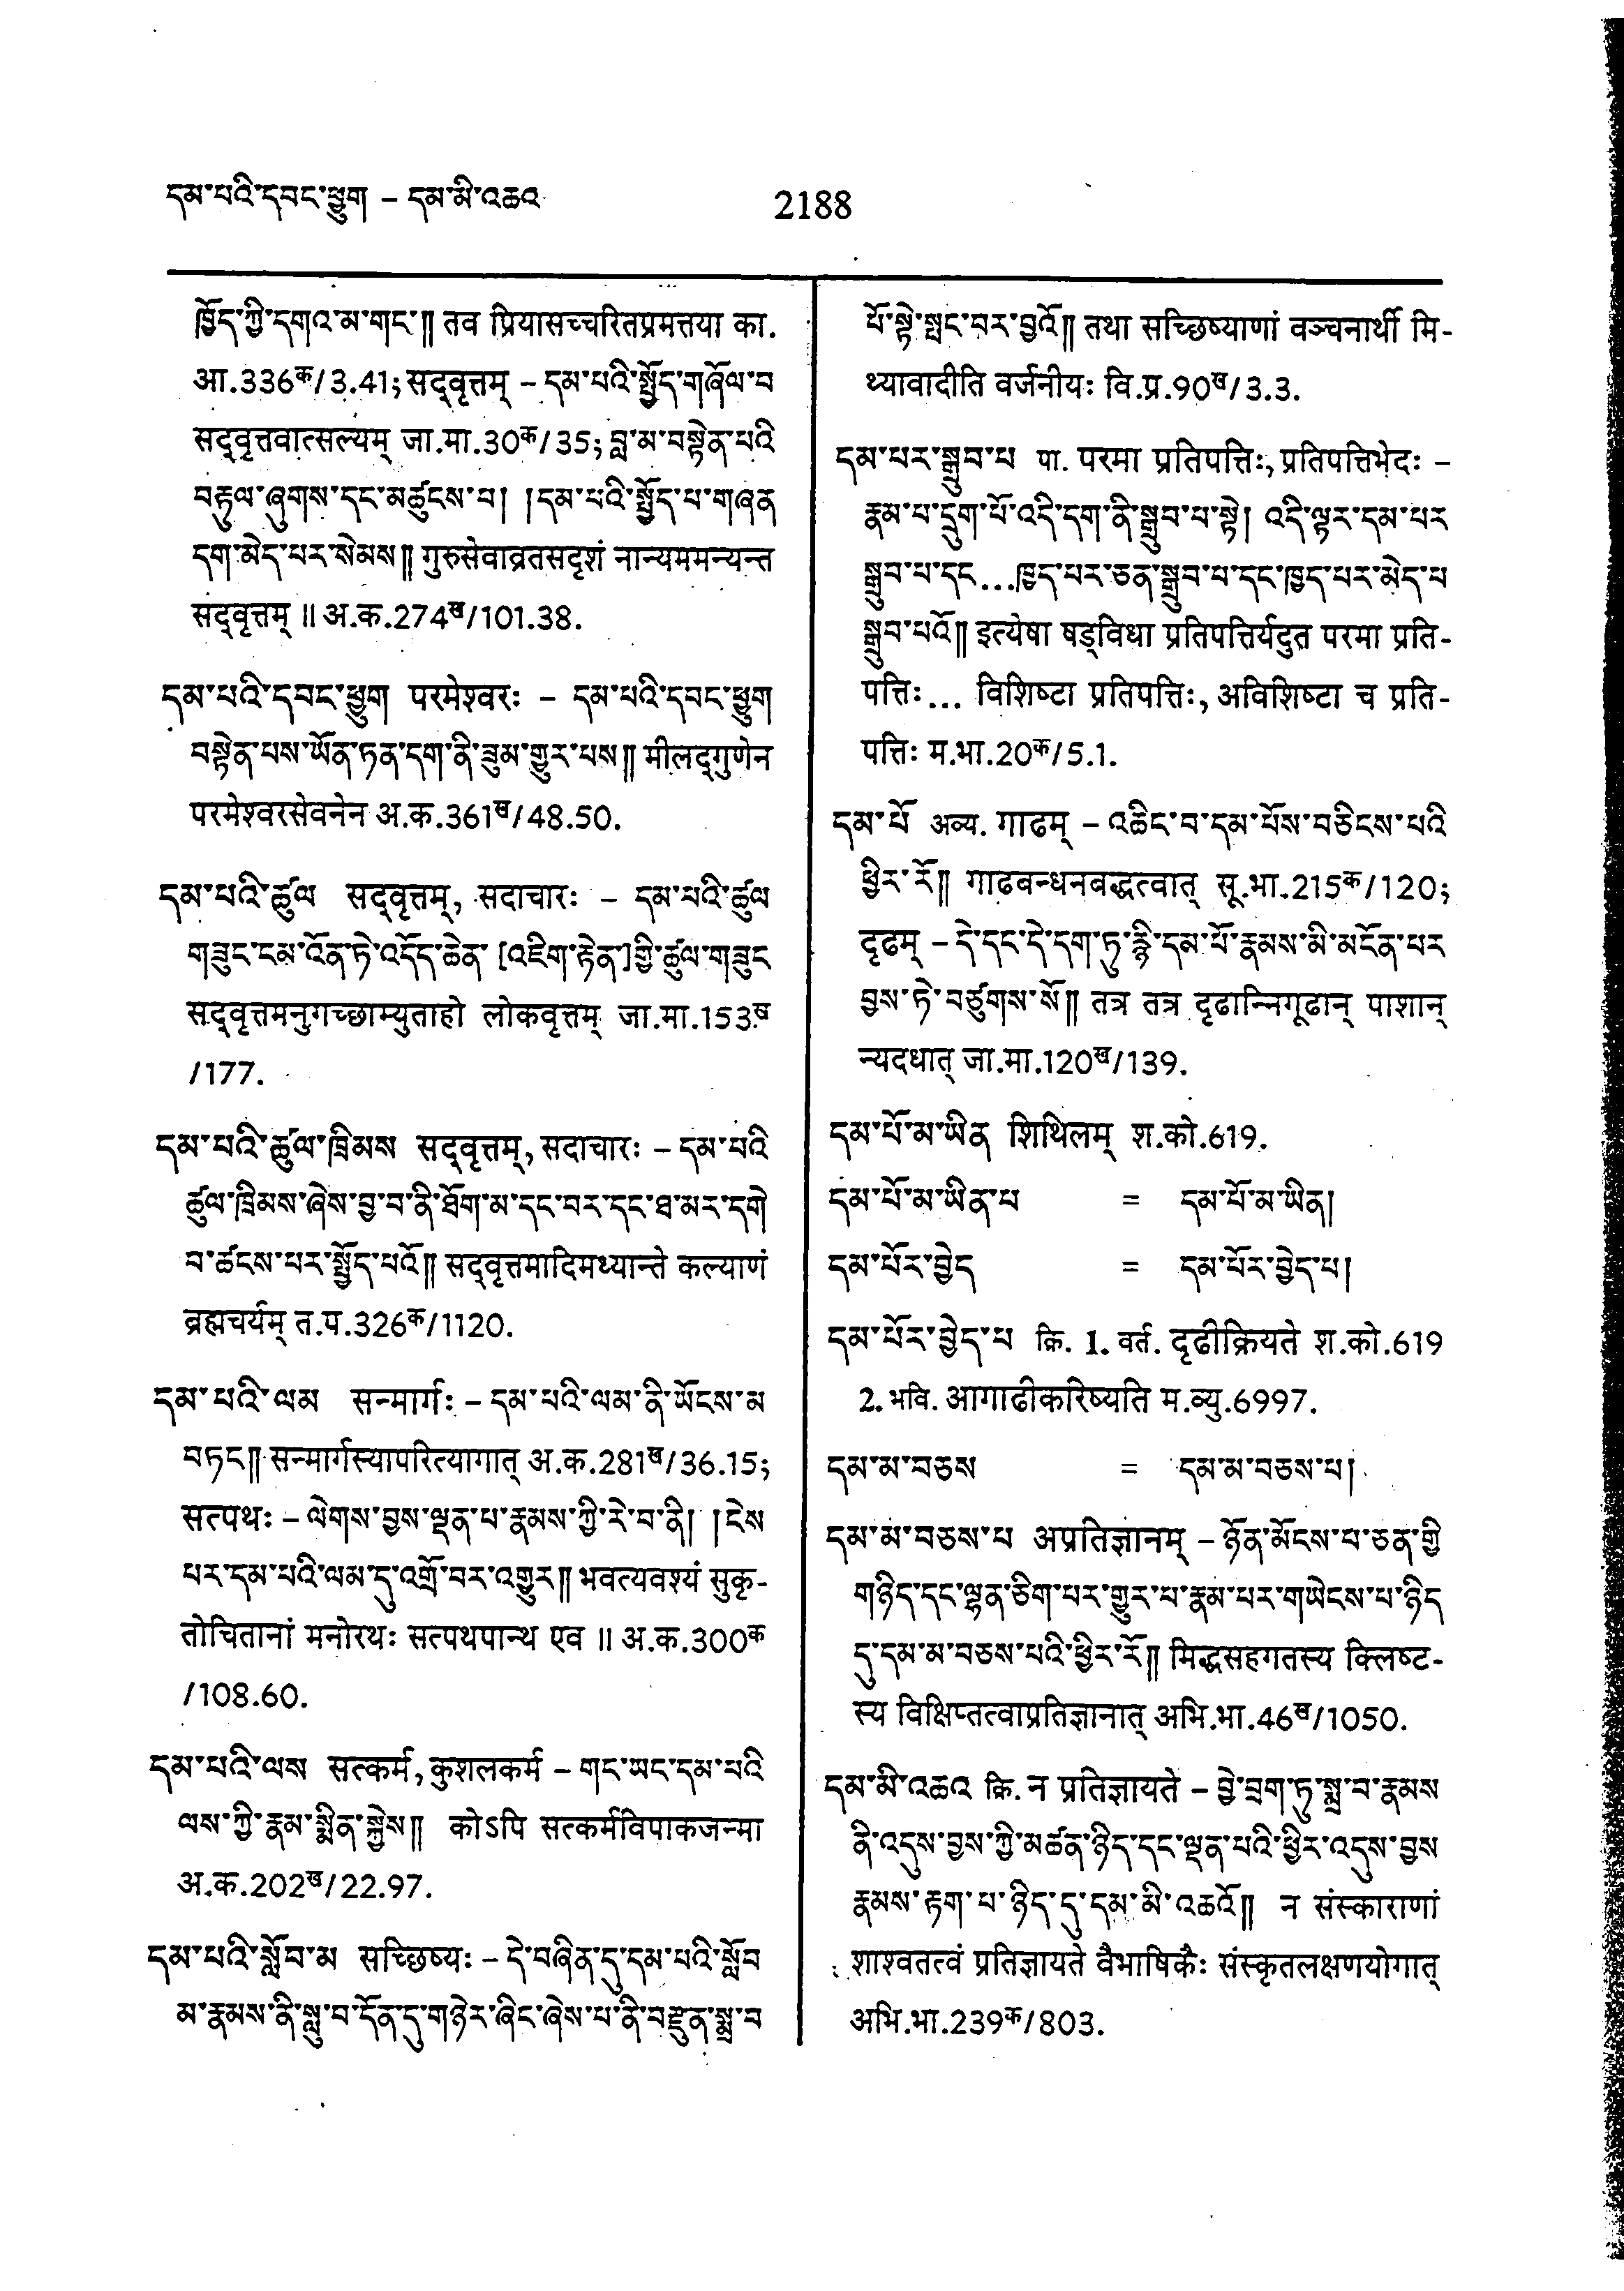 དམ་པའི་དབང་ཕྱུག – དམ་མི་འཆའ
2188
ཁྱོད་ཀྱི་དགའ་མ་གང་༎ तव प्रियासच्चरितप्रमत्तया का.
आ.336क/3.41; सद्‍वृत्तम् – དམ་པའི་སྤྱོད་གཞོལ་བ
सद्‍वृत्तवात्सल्यम् जा.मा.30क/35; བླ་མ་བསྟེན་པའི
བརྟུལ་ཞུགས་དང་མཚུངས་བ། །དམ་པའི་སྤྱོད་པ་གཞན
དག་མེད་པར་སེམས༎ गुरुसेवाव्रतसदृशं नान्यममन्यन्त
सद्‍वृत्तम् ॥ अ.क.274ख/101.38.
དམ་པའི་དབང་ཕྱུག परमेश्वरः – དམ་པའི་དབང་ཕྱུག
བསྟེན་པས་ཡོན་ཏན་དག་ནི་ཟུམ་གྱུར་པས༎ मीलद्‍गुणेन
परमेश्वरसेवनेन अ.क.361ख/48.50.
དམ་པའི་ཚུལ सद्‍वृत्तम्, सदाचारः – དམ་པའི་ཚུལ
གཟུང་ངམ་འོན་ཏེ་འདོད་ཆེན་ [འཇིག་རྟེན་]གྱི་ཚུལ་གཟུང
सद्‍वृत्तमनुगच्छाम्युताहो लोकवृत्तम् जा.मा.153ख
/177.
དམ་པའི་ཚུལ་ཁྲིམས सद्‍वृत्तम्, सदाचारः – དམ་པའི
ཚུལ་ཁྲིམས་ཞེས་བྱ་བ་ནི་ཐོག་མ་དང་བར་དང་ཐ་མར་དགེ
བ་ཚངས་པར་སྤྱོད་པའོ༎ सद्‍वृत्तमादिमध्यान्ते कल्याणं
ब्रह्मचर्यम् त.प.326क/1120.
དམ་པའི་ལམ सन्मार्गः – དམ་པའི་ལམ་ནི་ཡོངས་མ
བཏང༎ सन्मार्गस्यापरित्यागात् अ.क.281ख/36.15;
सत्पथः – ལེགས་བྱས་ལྡན་པ་རྣམས་ཀྱི་རེ་བ་ནི། །ངེས
པར་དམ་པའི་ལམ་དུ་འགྲོ་བར་འགྱུར༎ भवत्यवश्यं सुकृ-
तोचितानां मनोरथः सत्पथपान्थ एव ॥ अ.क.300क
/108.60.
དམ་པའི་ལས सत्कर्म, कुशलकर्म – གང་ཡང་དམ་པའི
ལས་ཀྱི་རྣམ་སྨིན་སྐྱེས༎ कोऽपि सत्कर्मविपाकजन्मा
अ.क.202ख/22.97.
དམ་པའི་སློབ་མ सच्छिष्यः – དེ་བཞིན་དུ་དམ་པའི་སློབ
མ་རྣམས་ནི་སླུ་བ་དོན་དུ་གཉེར་ཞིང་ཞེས་པ་ནི་བརྫུན་སྨྲ་བ
པོ་སྟེ་སྤང་བར་བྱའོ༎ तथा सच्छिष्याणां वञ्चनार्थी मि-
थ्यावादीति वर्जनीयः वि.प्र.90ख/3.3.
དམ་པར་སྒྲུབ་པ पा. परमा प्रतिपत्तिः, प्रतिपत्तिभेदः –
རྣམ་པ་དྲུག་པོ་འདི་དག་ནི་སྒྲུབ་པ་སྟེ། འདི་ལྟར་དམ་པར
སྒྲུབ་པ་དང...ཁྱད་པར་ཅན་སྒྲུབ་པ་དང་ཁྱད་པར་མེད་པ
སྒྲུབ་པའོ༎ इत्येषा षड्‍विधा प्रतिपत्तिर्यदुत परमा प्रति-
पत्तिः... विशिष्टा प्रतिपत्तिः, अविशिष्टा च प्रति-
पत्तिः म.भा.20क/5.1.
དམ་པོ अव्य. गाढम् – འཆིང་བ་དམ་པོས་བཅིངས་པའི
ཕྱིར་རོ༎ गाढबन्धनबद्धत्वात् सू.भा.215क/120;
दृढम् – དེ་དང་དེ་དག་ཏུ་རྙི་དམ་པོ་རྣམས་མི་མངོན་པར
བྱས་ཏེ་བཙུགས་སོ༎ तत्र तत्र दृढान्निगूढान् पाशान्
न्यदधात् जा.मा.120ख/139.
དམ་པོ་མ་ཡིན शिथिलम् श.को.619.
དམ་པོ་མ་ཡིན་པ = དམ་པོ་མ་ཡིན།
དམ་པོར་བྱེད = དམ་པོར་བྱེད་པ།
དམ་པོར་བྱེད་པ क्रि. 1. वर्त. दृढीक्रियते श.को.619
2. भवि. आगाढीकरिष्यति म.व्यु.6997.
དམ་མ་བཅས = དམ་མ་བཅས་པ།
དམ་མ་བཅས་པ अप्रतिज्ञानम् – ཉོན་མོངས་པ་ཅན་གྱི
གཉིད་དང་ལྷན་ཅིག་པར་གྱུར་པ་རྣམ་པར་གཡེངས་པ་ཉིད
དུ་དམ་མ་བཅས་པའི་ཕྱིར་རོ༎ मिद्धसहगतस्य क्लिष्ट-
स्य विक्षिप्तत्वाप्रतिज्ञानात् अभि.भा.46ख/1050.
དམ་མི་འཆའ क्रि. न प्रतिज्ञायते – བྱེ་བྲག་ཏུ་སྨྲ་བ་རྣམས
ནི་འདུས་བྱས་ཀྱི་མཚན་ཉིད་དང་ལྡན་པའི་ཕྱིར་འདུས་བྱས
རྣམས་རྟག་པ་ཉིད་དུ་དམ་མི་འཆའོ༎ न संस्काराणां
शाश्वतत्वं प्रतिज्ञायते वैभाषिकैः संस्कृतलक्षणयोगात्
अभि.भा.239क/803.